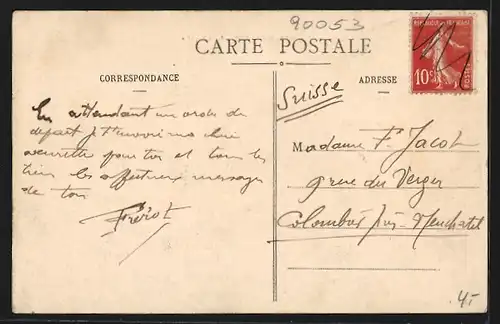 90053
CARTE POSTALE
REPUBLIQUE FRANÇAISE
10 c
POSTES
CORRESPONDANCE
ADRESSE
Suisse
En attendant un ordre de
départ je t'enverrai ma
pour toi et tous les
tiens les affectueux messages
de ton
Frérot
Madame F. Jacot
9 rue du Verger
Colombier près Neuchatel
4.-